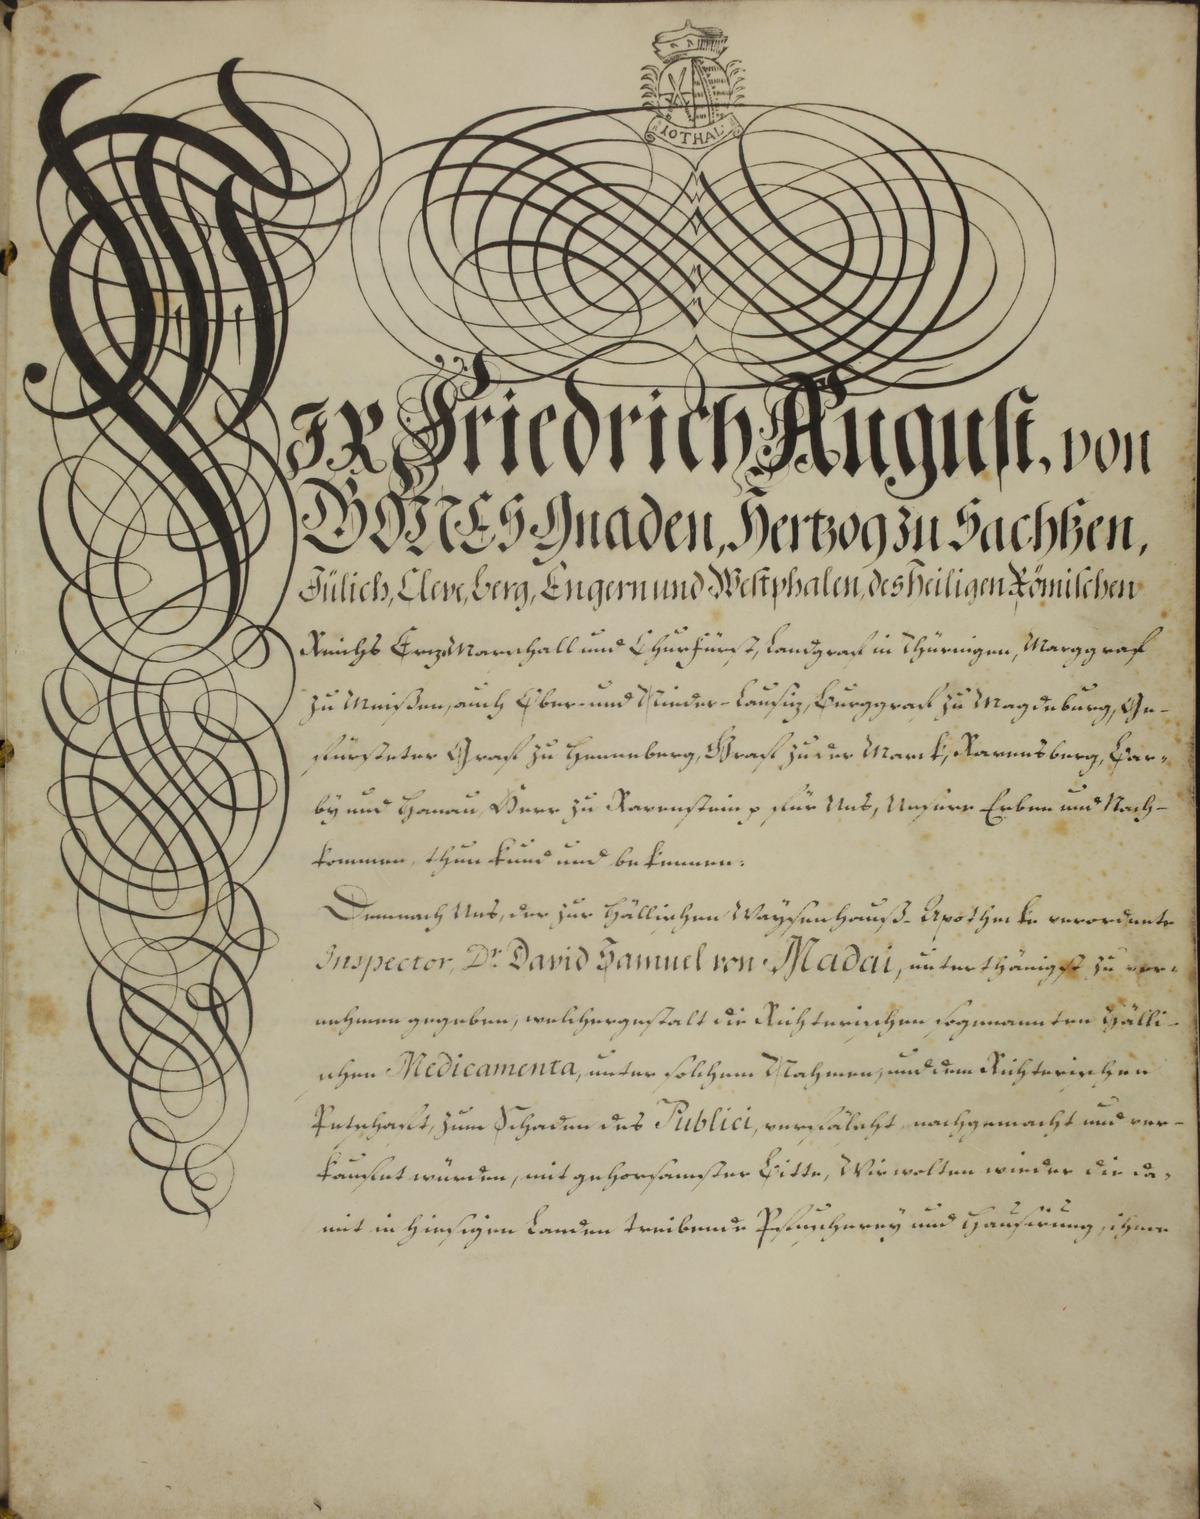 10THAL
WIR Friedrich August, von
GOTTES Gnaden, Hertzog zu Sachßen,
Jülich, Cleve, Berg, Engern und Westphalen, des Heiligen Römischen
Reichs Erz-Marschall und Churfürst, Landgraf in Thüringen, Marggraf
zu Meißen, auch Ober- und Nieder-Lausiz, Burggraf zu Magdeburg, Ge-
fürsteter Graf zu Henneberg, Graf zu der Marck, Ravensberg, Bar-
by und Hanau, Herr zu Ravenstein p für Uns, Unsere Erben und Nach-
kommen, thun kund und bekennen:
Demnach Uns, der zur Hällischen Waysenhauß-Apothecke verordnete
Inspector, Dr. David Samuel von Madai, unterthänigst zu ver-
nehmen gegeben, welchergestalt die Richterischen sogenannten Hälli-
schen Medicamenta, unter solchem Nahmen, und dem Richterischen
Petschaft, zum Schaden des Publici, verfälscht, nachgemacht und ver-
kaufet würden, mit gehorsamster Bitte, Wir wolten wieder die da-
mit in hiesigen Landen treibende Pfuscherey und Hausirung, ihme